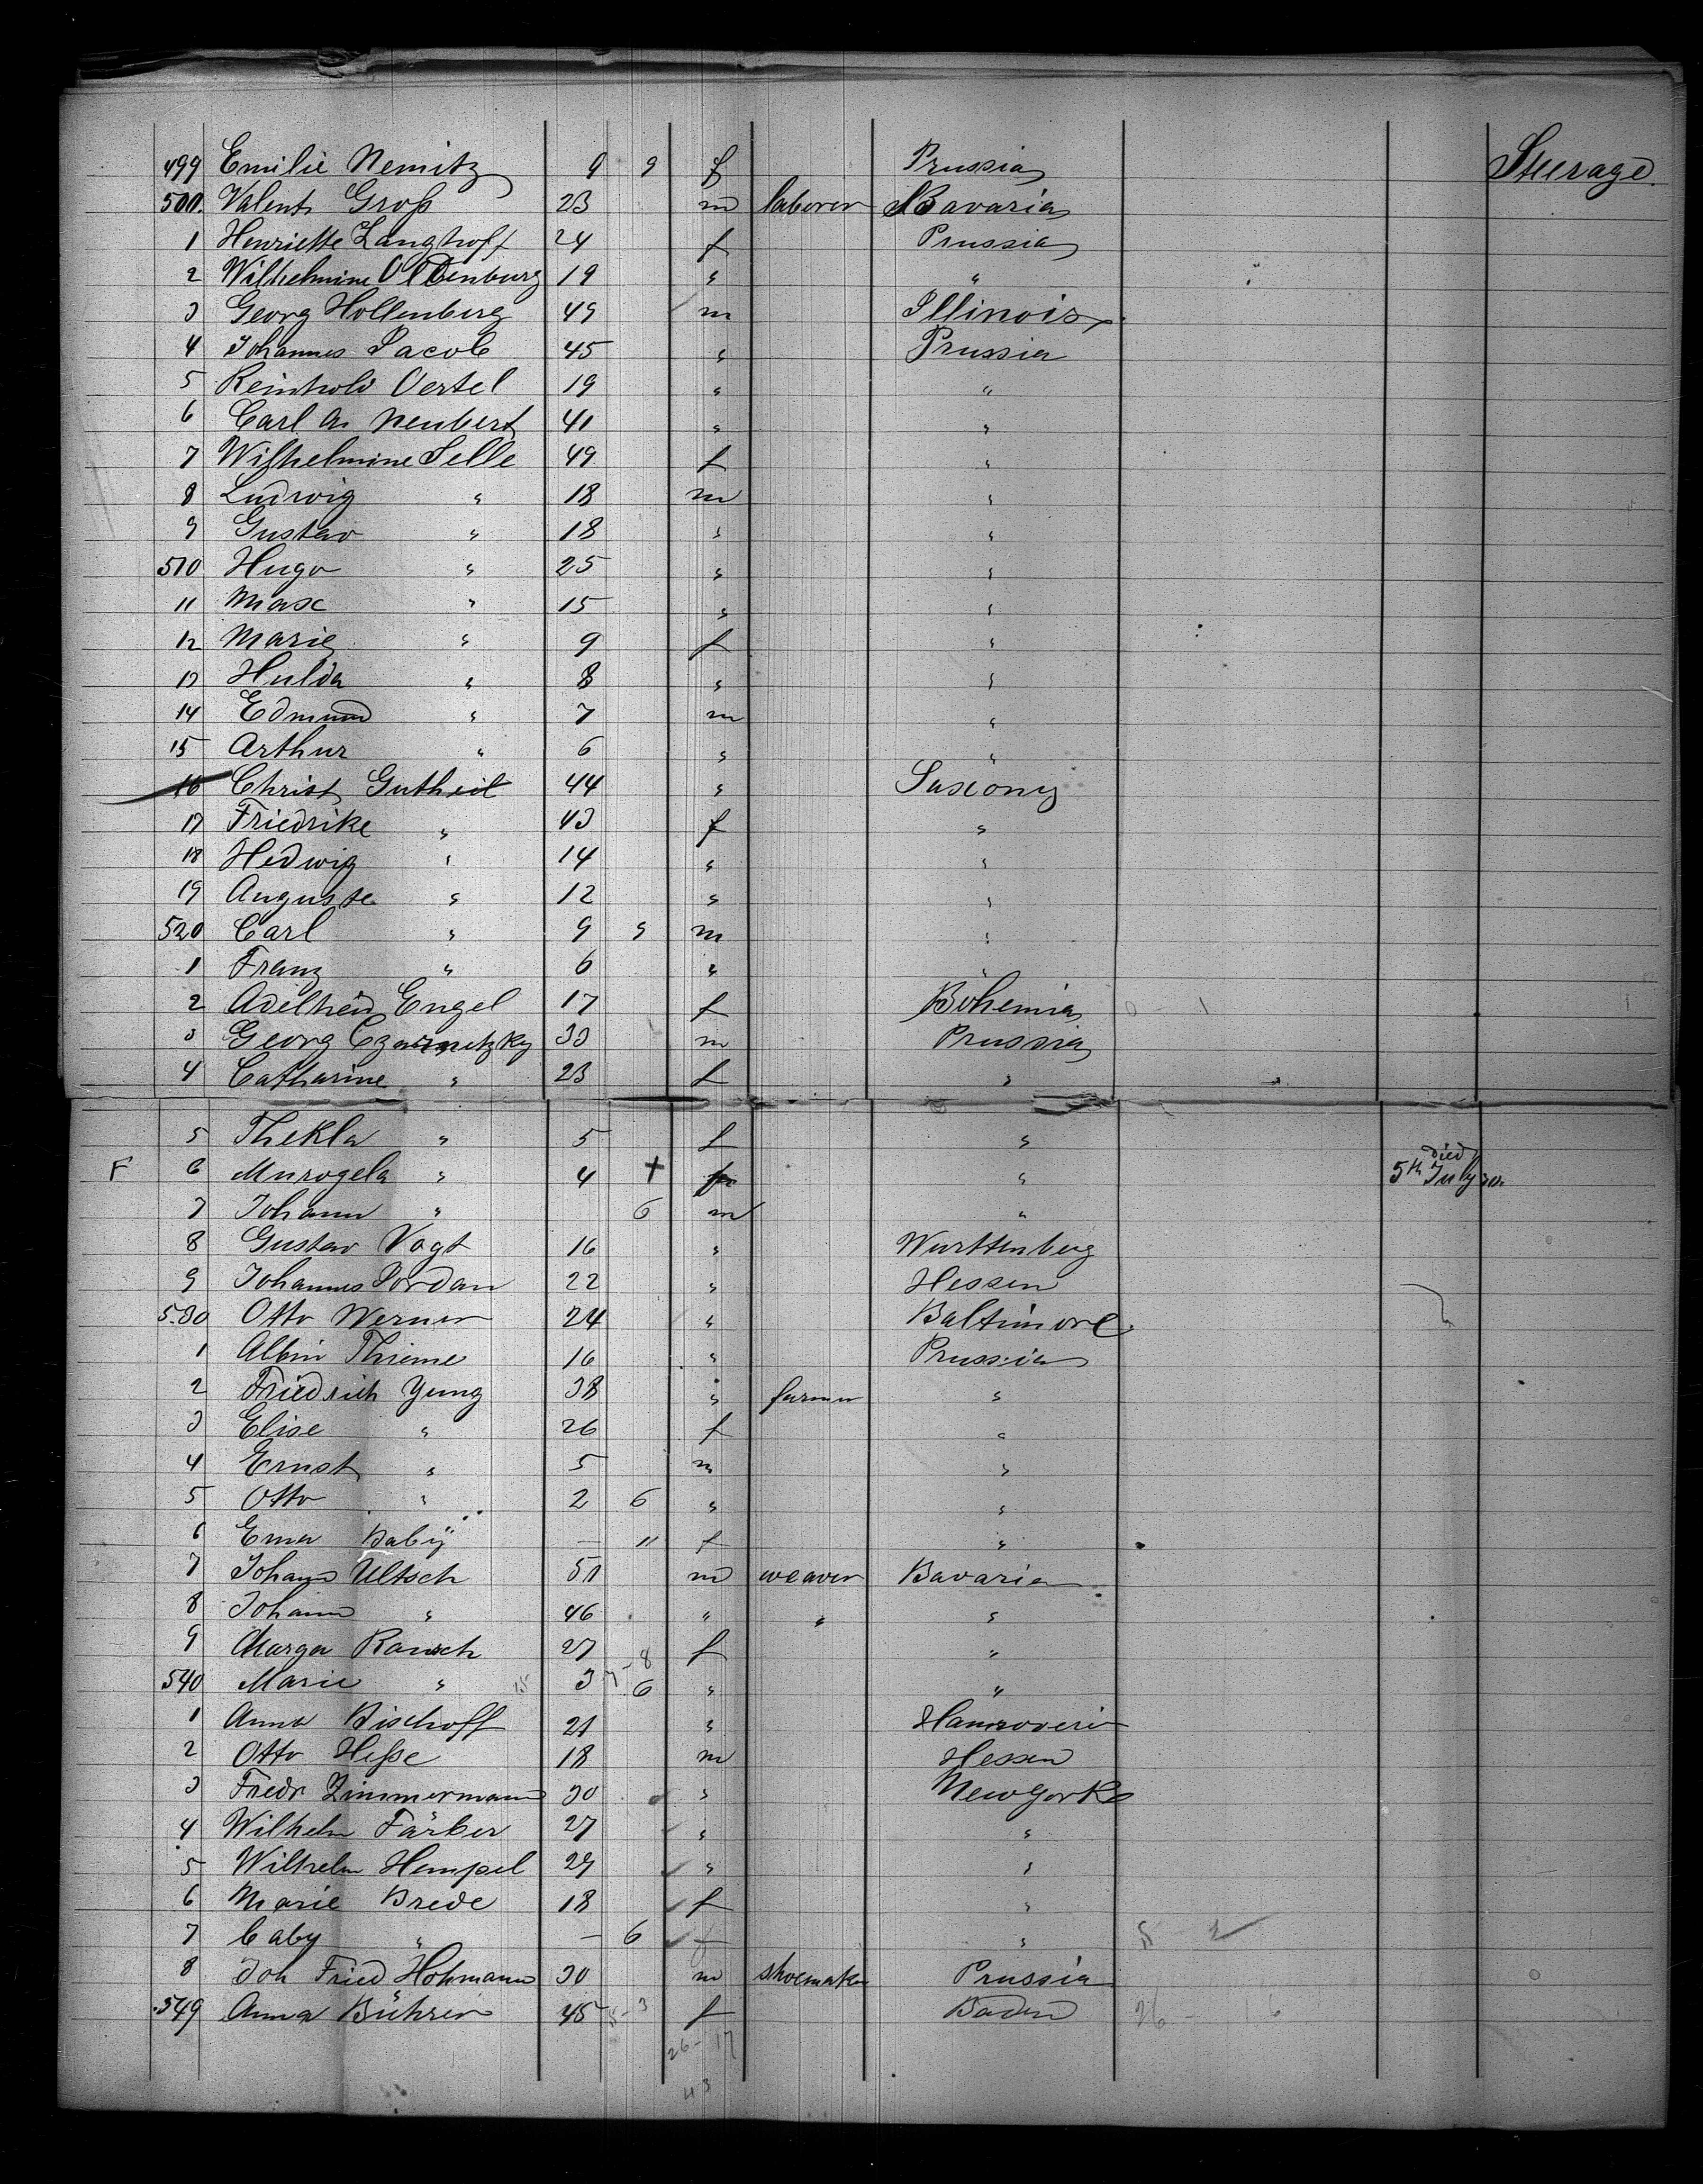 499 Emilie Nemitz 9 9 f Prussia Steerage.
500. Valent Groß 23 m laborer Bavaria
1 Henriette Langhoff 24 f Prussia
2 Wilhelmine Oldenburg 19 " "
3 Georg Hollenberg 49 m Illinois
4 Johannes Jacob 45 " Prussia
5 Reinhold Oertel 19 " "
6 Carl A. Neubert 41 " "
7 Wilhelmine Selle 49 f "
8 Ludwig " 18 m "
9 Gustav " 18 " "
510 Hugo " 25 " "
11 Max " 15 " "
12 Marie " 9 f "
13 Hulda " 8 " "
14 Edmund " 7 m "
15 Arthur " 6 " "
16 Christ Gutheil 44 " Saxony
17 Friedrike " 43 f "
18 Hedwig " 14 " "
19 Auguste " 12 " "
520 Carl " 9 9 m "
1 Franz " 6 " "
2 Adelheid Engel 17 f Bohemia 0 - 1
3 Georg Czarnetzky 33 m Prussia
4 Catharine " 23 f "
5 Thekla " 5 f "
F 6 " 4 + " died 5th July
7 Johann " 6 m "
8 Gustav Vogt 16 " Wurttenberg
9 Johannes Jordan 22 " Hessen
530 Otto Werner 24 " Baltimore.
1 Albin Thieme 16 " Prussia
2 Friedrich Yung 38 " farmer "
3 Elise " 26 f "
4 Ernst " 5 m "
5 Otto " 2 6 " "
6 Ema Baby " — 11 f "
7 Johann Ultsch 51 m weaver Bavaria
8 Johann " 46 " " "
9 Marga Rausch 27 f "
540 Marie " 3 6 " "
1 Anna Bischoff 21 " Hannover
2 Otto Heße 18 m Hessen
3 Fredr Zimmermann 30 " New York
4 Wilhelm Färber 27 " "
5 Wilhelm Hempel 29 " "
6 Marie Brede 18 f "
7 baby " — 6 f "
8 Joh Fried Hohmann 30 m shoemaker Prussia
549 Anna Bührer 45 f Baden 26 - 16
26 - 17
43